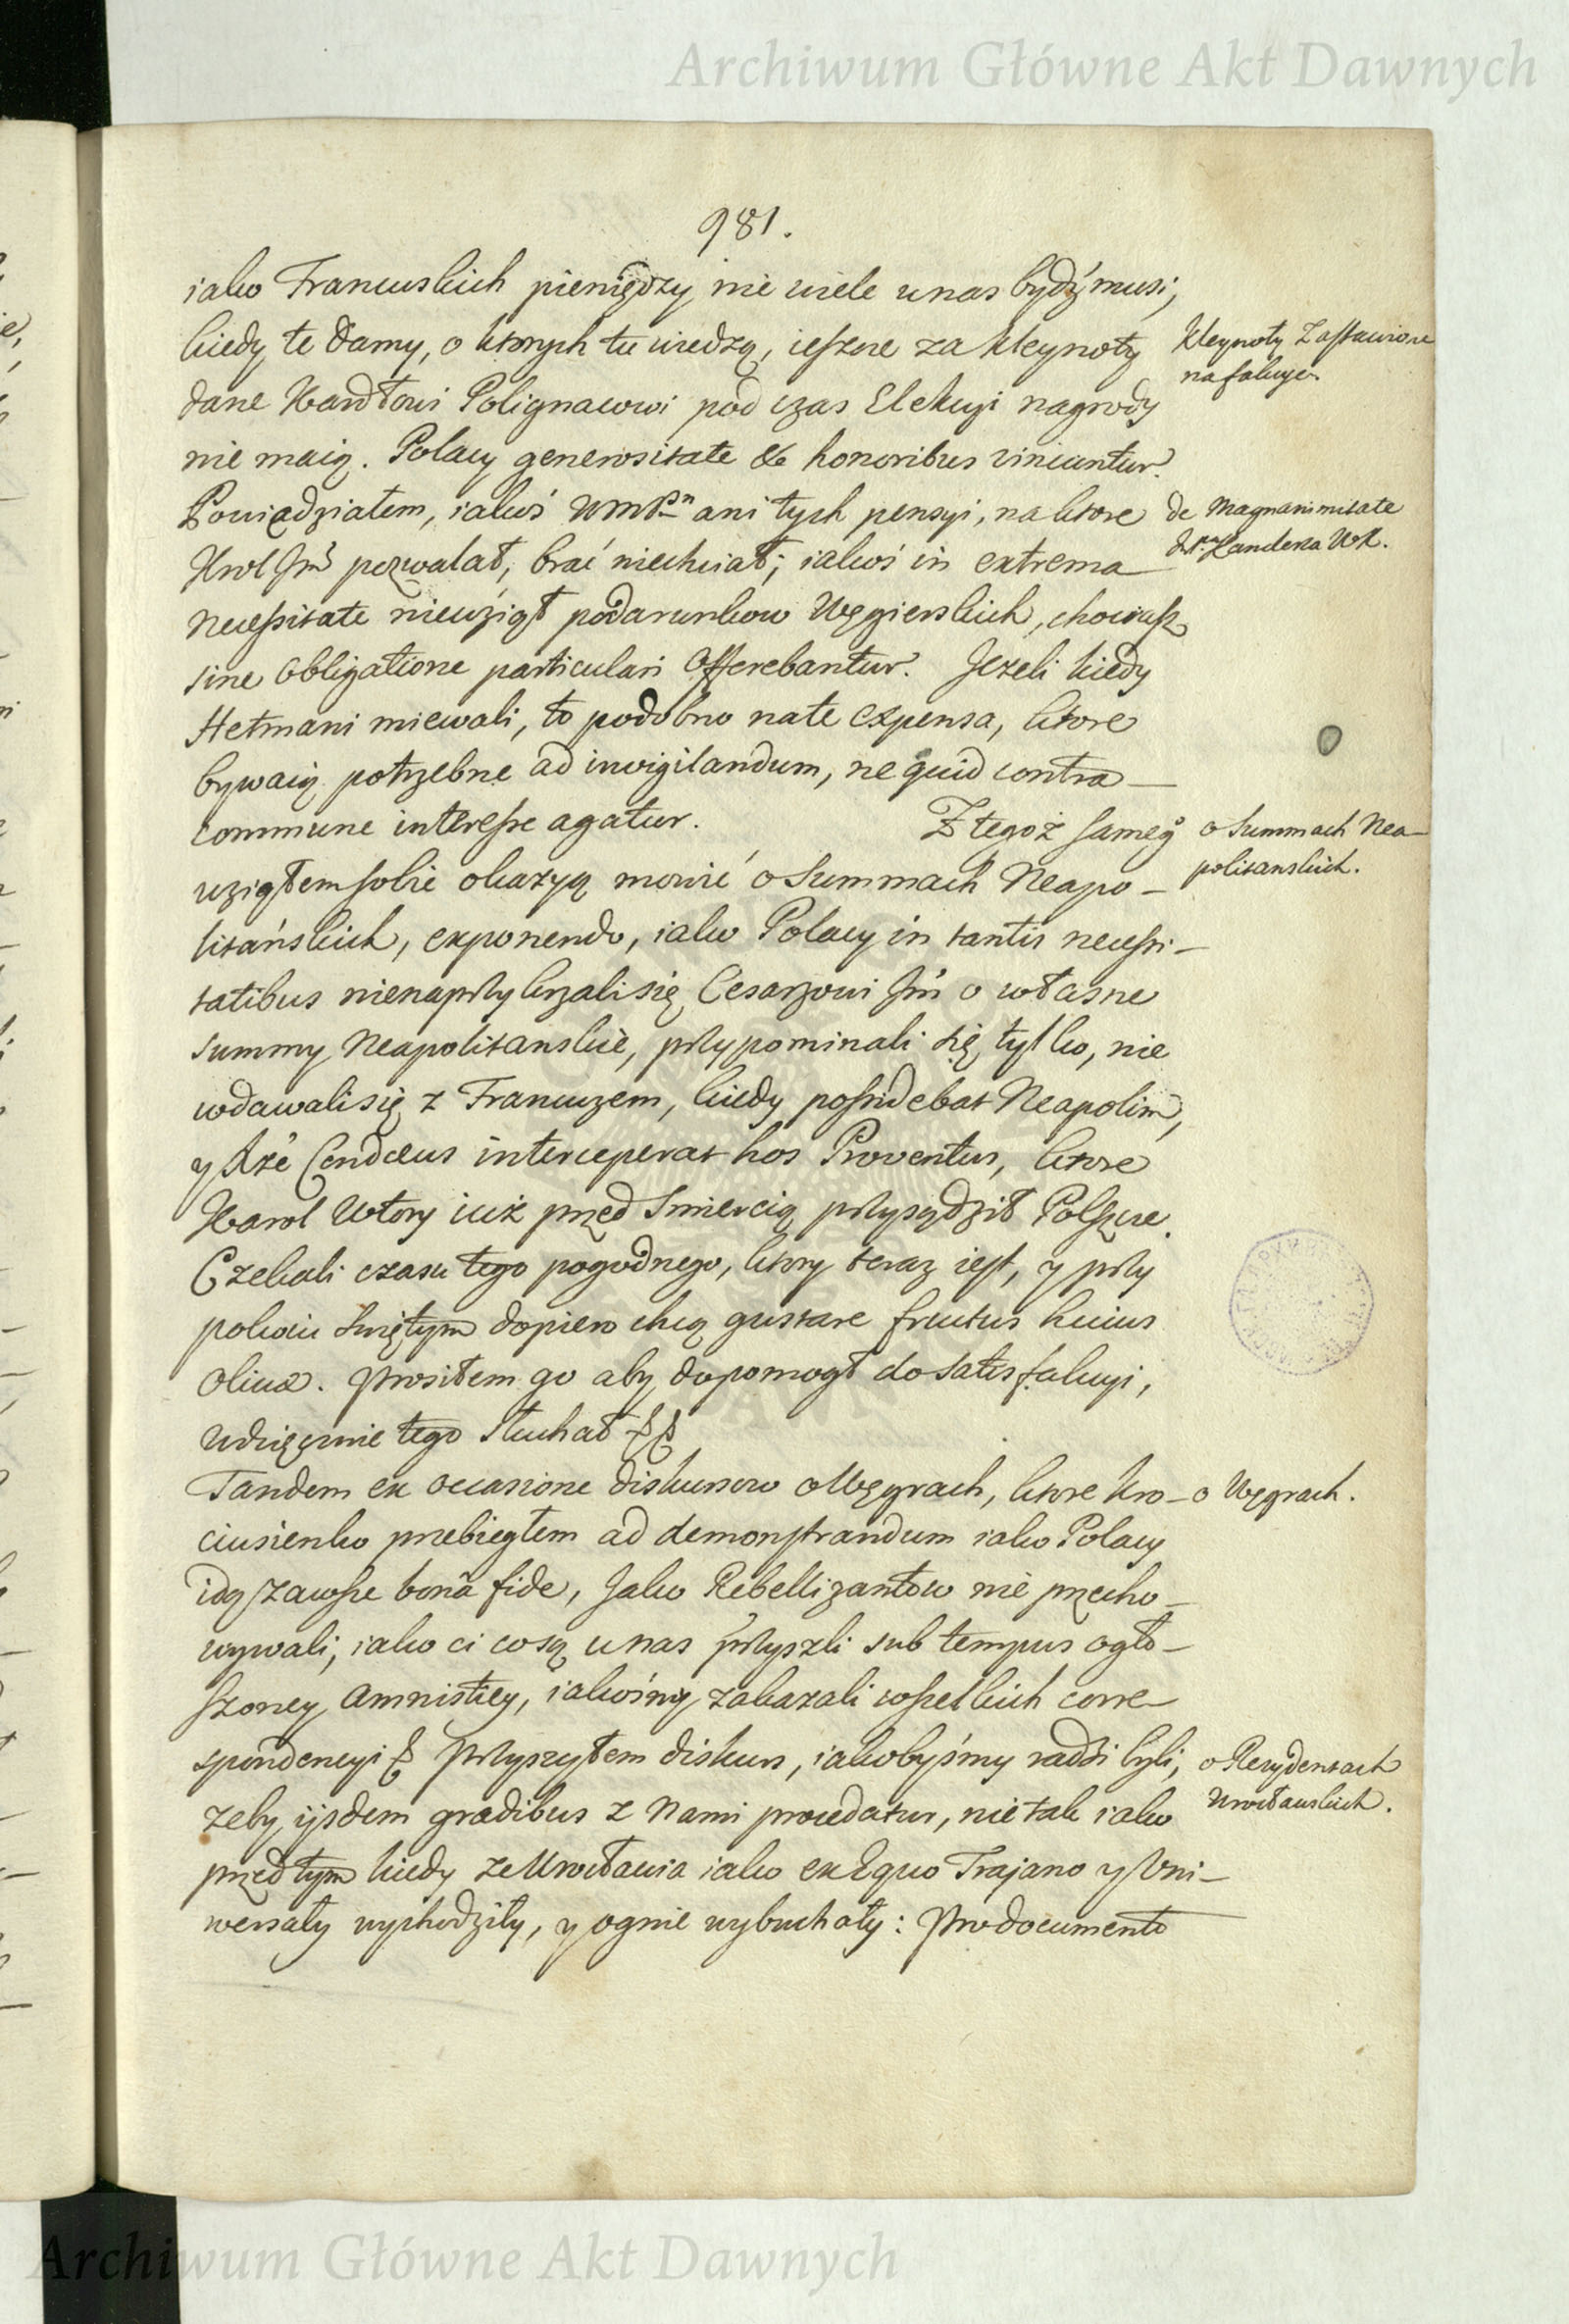 Archiwum Główne Akt Dawnych
981.
iako Francuskich pieniędzy nie wiele u nas bydź musi,
kiedy te Damy, o ktorych tu wiedzą, ieszcze za kleynoty
Kleynoty Zastawione
na fakcye.
dane Kardłowi Polignacowi pod czas Elekcyi nagrody
nie maią. Polacy generositate & honoribus vincuntur.
Powiadziałem, iakoś WMPn ani tych pensyi, na ktore
de Magnanimitate
Krol Jmć pozwalał, brać niechciał; iakoś in extrema
necessitate niewziął podarunkow Węgierskich, chociasz
sine obligatione particulari offerebantur. Jezeli kiedy
Hetmani miewali, to podobno na te expensa, ktore
bywaią potrzebne ad invigilandum, ne quid contra
commune interesse agatur. Z tegoż samego
o Summach Nea-
politanskich.
wziąłem sobie okazyą mowić o Summach Neapo-
litańskich, exponendo, iako Polacy in tantis necessi-
tatibus nienaprzykrzali się Cesarzowi Jmć o własne
summy Neapolitanskie, przypominali się tylko, nie
wdawali się z Francuzem, kiedy possidebat Neapolim,
y Xże Condæus interceperat hos Proventus, ktore
Karol Wtory iuż przed Smiercią przysądził Polszcze.
Czekali czasu tego pogodnego, ktory teraz iest, y przy
pokoiu Swiętym dopiero chcą gustare fructus huius
Olivæ. Prosiłem go aby dopomogł do satisfakcyi,
wdzięcznie tego Słuchał
Tandem ex occasione diskursow o Węgrach, ktore kro-
o Węgrach.
ciusienko przebiegłem ad demonstrandum iako Polacy
idą zawsze bonâ fide, Jako Rebellizantow nie przecho-
wywali, iako ci co są u nas przyszli sub tempus ogło-
szoney Amnistiey, iakośmy zakazali wszelkich corre-
spondencyi Przyszyłem diskurs, iakobyśmy radzi byli,
o Rezydentach
Wrocławskich.
zeby ijsdem gradibus z Nami procedatur, nie tak iako
przed tym kiedy ze Wrocławia iako ex Equo Trajano y Uni-
wersały wychodziły, y ognie wybuchały: Pro documento
Archiwum Główne Akt Dawnych